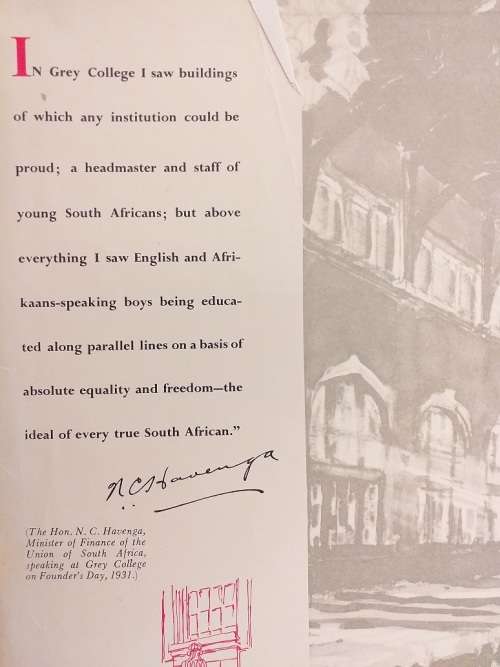 IN Grey College I saw buildings
of which any institution could be
proud; a headmaster and staff of
young South Africans; but above
everything I saw English and Afri-
kaans-speaking boys being educa-
ted along parallel lines on a basis of
absolute equality and freedom—the
ideal of every true South African.”
N. C. Havenga
(The Hon. N. C. Havenga,
Minister of Finance of the
Union of South Africa,
speaking at Grey College
on Founder's Day, 1931.)